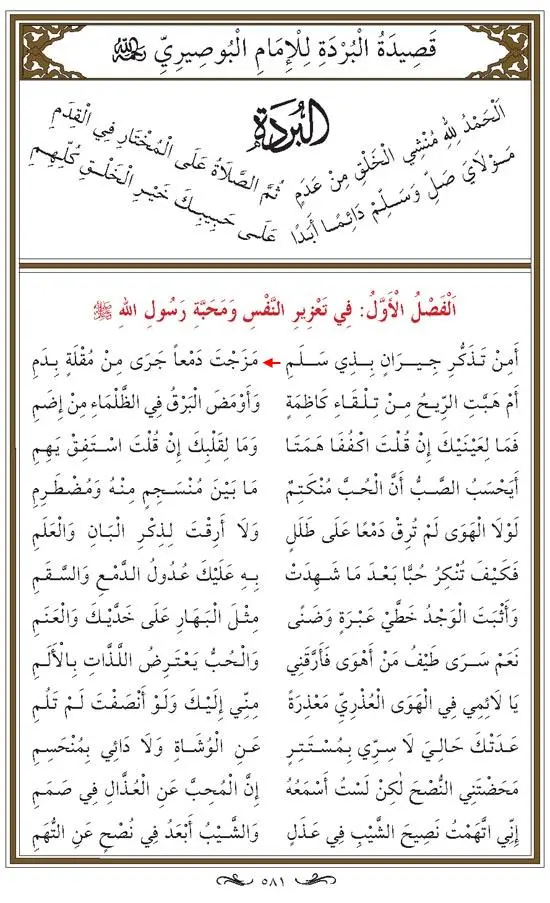 قَصِيدَةُ الْبُرْدَةِ لِلْإِمَامِ الْبُوصِيرِيِّ رحمه الله
البُرْدَة
اَلْحَمْدُ لِلّٰهِ مُنْشِي الْخَلْقِ مِنْ عَدَمٍ ثُمَّ الصَّلَاةُ عَلَى الْمُخْتَارِ فِي الْقِدَمِ
مَوْلَايَ صَلِّ وَسَلِّمْ دَائِمًا أَبَدًا عَلَى حَبِيبِكَ خَيْرِ الْخَلْقِ كُلِّهِمِ
اَلْفَصْلُ الْأَوَّلُ: فِي تَعْزِيرِ النَّفْسِ وَمَحَبَّةِ رَسُولِ اللهِ ﷺ
أَمِنْ تَذَكُّرِ جِيرَانٍ بِذِي سَلَمِ مَزَجْتَ دَمْعاً جَرَى مِنْ مُقْلَةٍ بِدَمِ
أَمْ هَبَّتِ الرِّيحُ مِنْ تِلْقَاءِ كَاظِمَةٍ وَأَوْمَضَ الْبَرْقُ فِي الظَّلْمَاءِ مِنْ إِضَمِ
فَمَا لِعَيْنَيْكَ إِنْ قُلْتَ اكْفُفَا هَمَتَا وَمَا لِقَلْبِكَ إِنْ قُلْتَ اسْتَفِقْ يَهِمِ
أَيَحْسَبُ الصَّبُّ أَنَّ الْحُبَّ مُنْكَتِمٌ مَا بَيْنَ مُنْسَجِمٍ مِنْهُ وَمُضْطَرِمِ
لَوْلَا الْهَوَى لَمْ تُرِقْ دَمْعًا عَلَى طَلَلٍ وَلَا أَرِقْتَ لِذِكْرِ الْبَانِ وَالْعَلَمِ
فَكَيْفَ تُنْكِرُ حُبًّا بَعْدَ مَا شَهِدَتْ بِهِ عَلَيْكَ عُدُولُ الدَّمْعِ وَالسَّقَمِ
وَأَثْبَتَ الْوَجْدُ خَطَّيْ عَبْرَةٍ وَضَنًى مِثْلَ الْبَهَارِ عَلَى خَدَّيْكَ وَالْعَنَمِ
نَعَمْ سَرَى طَيْفُ مَنْ أَهْوَى فَأَرَّقَنِي وَالْحُبُّ يَعْتَرِضُ اللَّذَّاتِ بِالْأَلَمِ
يَا لَائِمِي فِي الْهَوَى الْعُذْرِيِّ مَعْذِرَةً مِنِّي إِلَيْكَ وَلَوْ أَنْصَفْتَ لَمْ تَلُمِ
عَدَتْكَ حَالِيَ لَا سِرِّي بِمُسْتَتِرٍ عَنِ الْوُشَاةِ وَلَا دَائِي بِمُنْحَسِمِ
مَحَضْتَنِي النُّصْحَ لٰكِنْ لَسْتُ أَسْمَعُهُ إِنَّ الْمُحِبَّ عَنِ الْعُذَّالِ فِي صَمَمِ
إِنِّي اتَّهَمْتُ نَصِيحَ الشَّيْبِ فِي عَذَلٍ وَالشَّيْبُ أَبْعَدُ فِي نُصْحٍ عَنِ التُّهَمِ
٥٨١